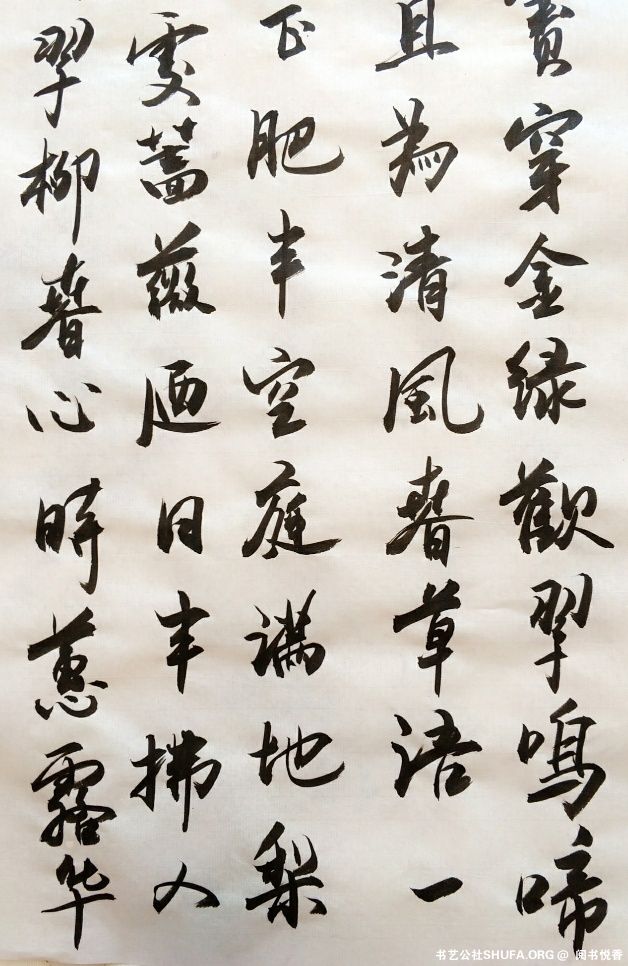 穿金绿歡翠鳴啼
且為清風春草语一
正肥丰空庭满地梨
雯蔷薇迺日丰拂人
翠柳春心時蕙露华
书艺公社SHUFA.ORG @ 闻书悦香